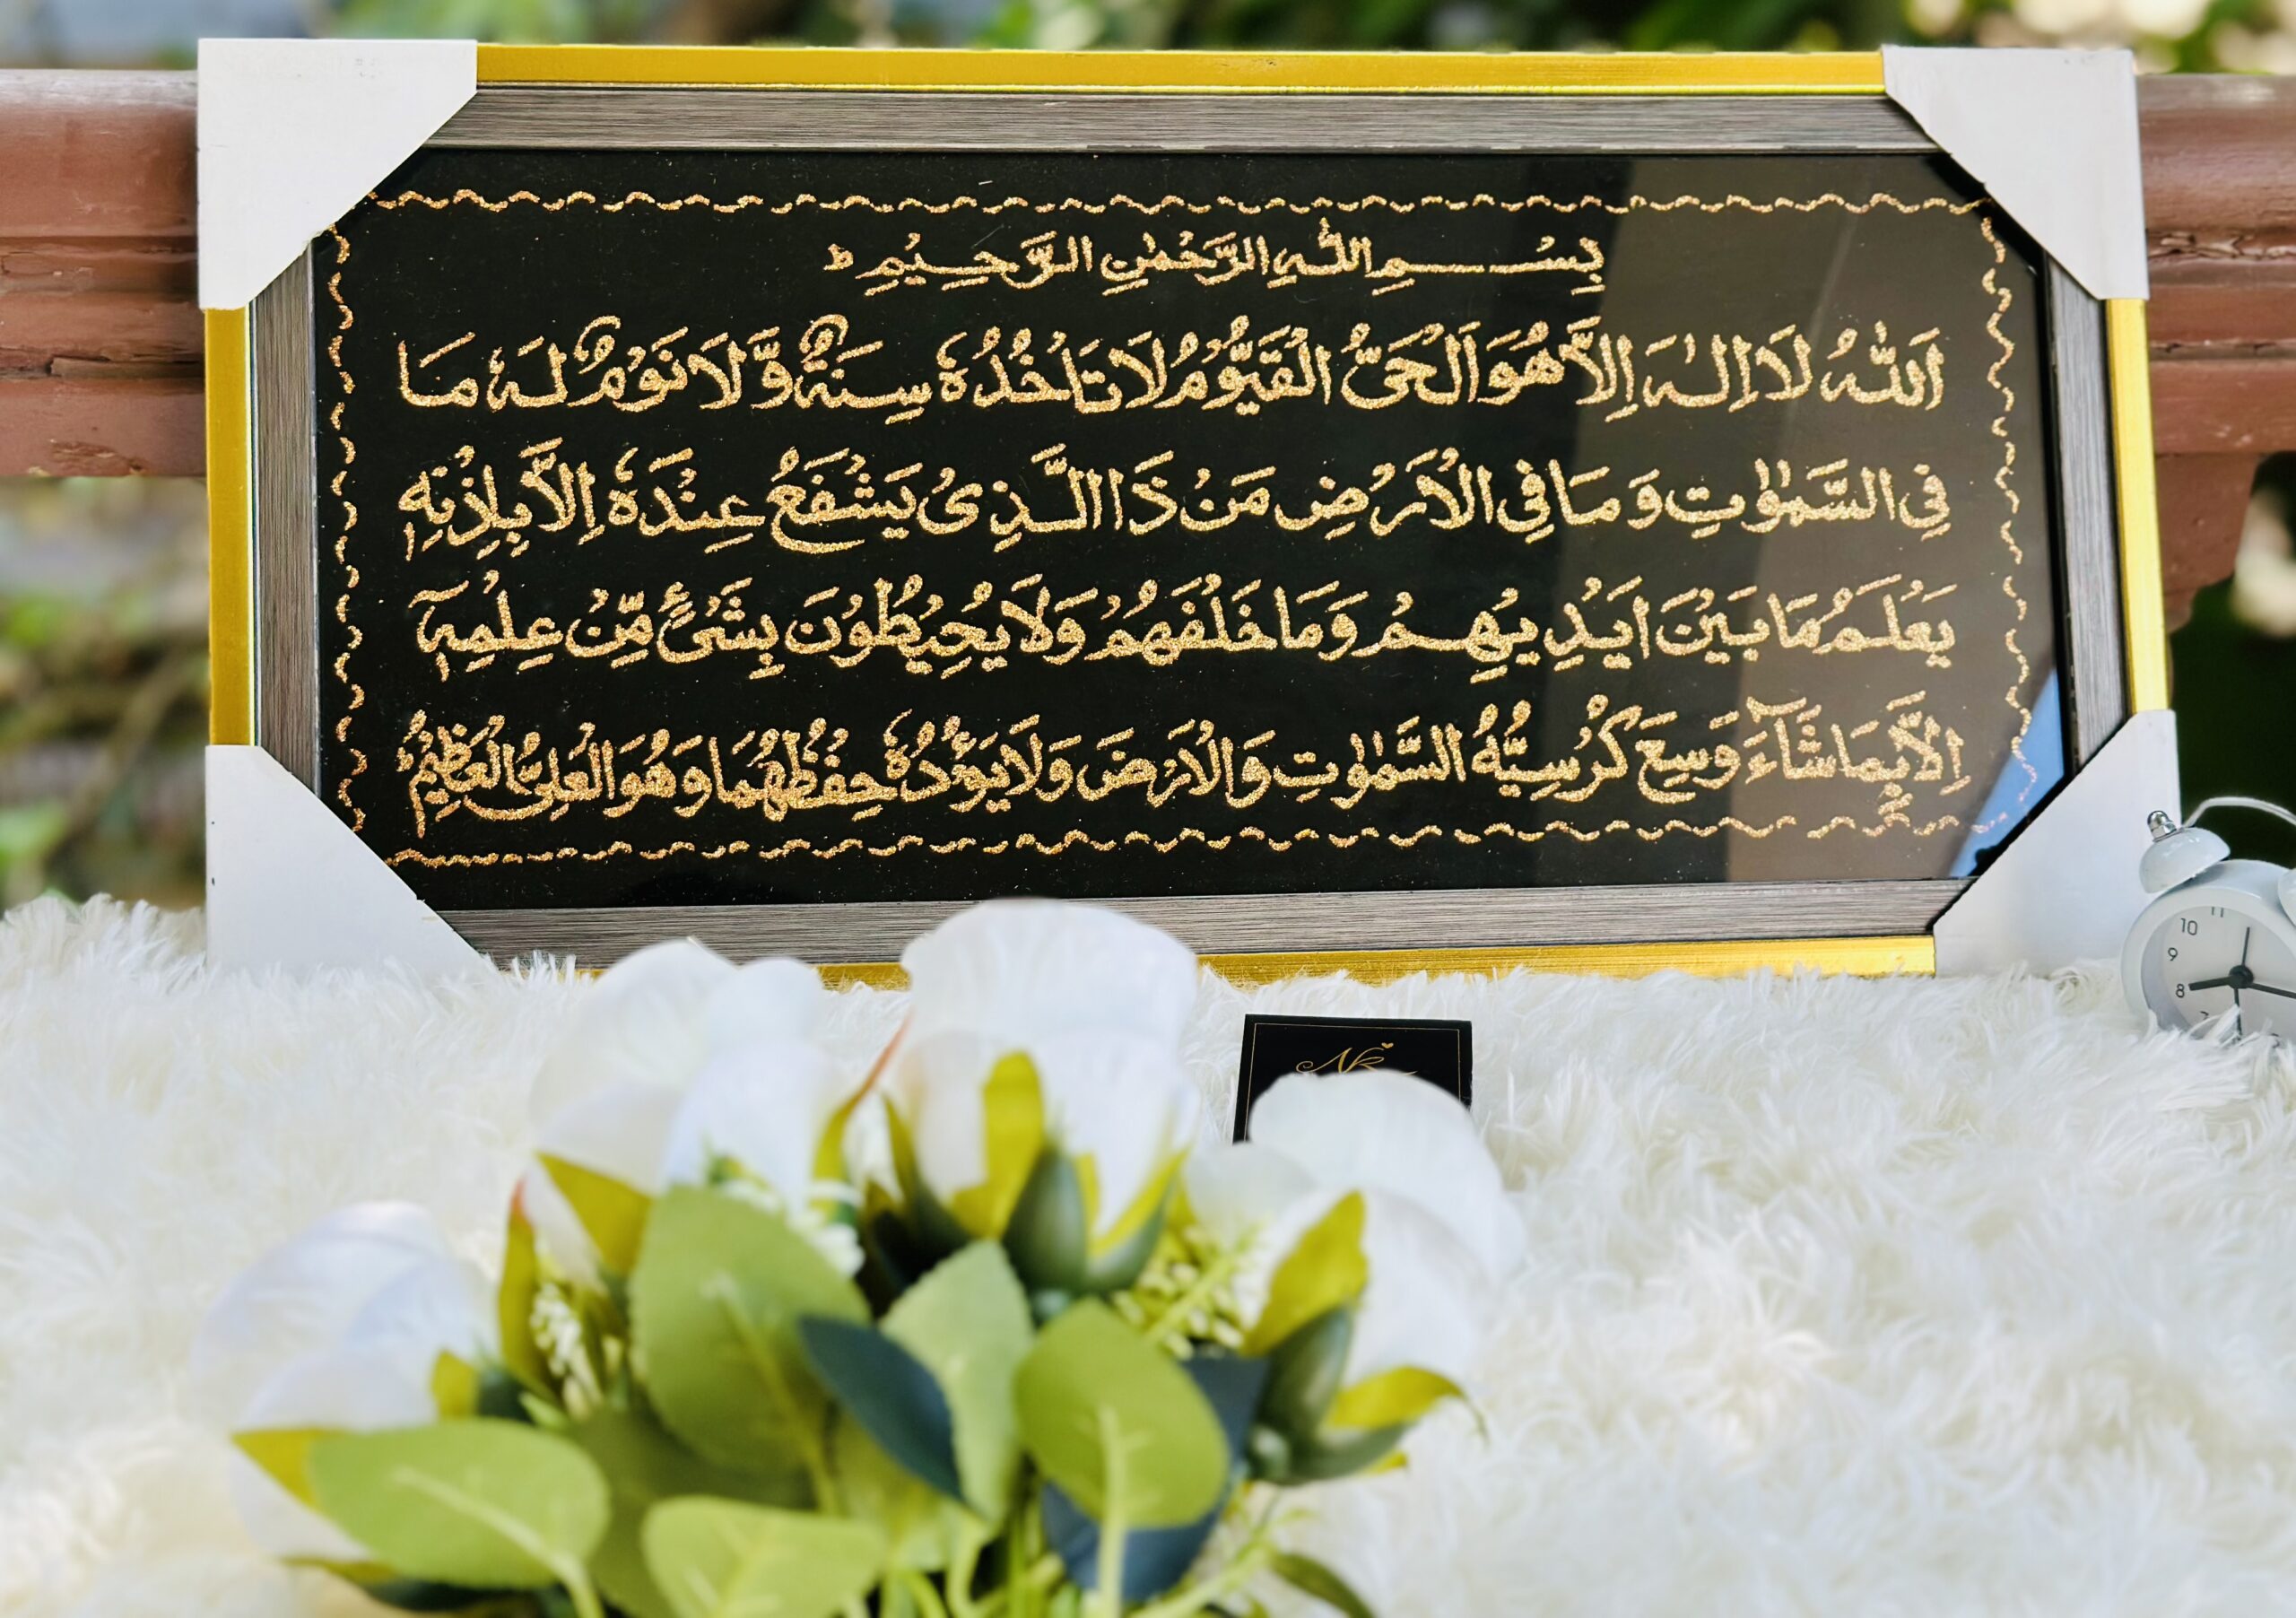 بِسْمِ اللّٰهِ الرَّحْمٰنِ الرَّحِيْمِ ط
اَللّٰهُ لَا اِلٰهَ اِلَّا هُوَ اَلْحَیُّ الْقَيُّوْمُ لَا تَاْخُذُهٗ سِنَةٌ وَّلَا نَوْمٌ لَهٗ مَا
فِی السَّمٰوٰتِ وَمَا فِی الْاَرْضِ مَنْ ذَا الَّذِیْ يَشْفَعُ عِنْدَهٗ اِلَّا بِاِذْنِهٖ
يَعْلَمُ مَا بَيْنَ اَيْدِيْهِمْ وَمَا خَلْفَهُمْ وَلَا يُحِيْطُوْنَ بِشَیْءٍ مِّنْ عِلْمِهٖٓ
اِلَّا بِمَا شَآءَ وَسِعَ كُرْسِيُّهُ السَّمٰوٰتِ وَالْاَرْضَ وَلَا يَؤُدُهٗ حِفْظُهُمَا وَهُوَ الْعَلِیُّ الْعَظِيْمُ
10 11
9
8
7